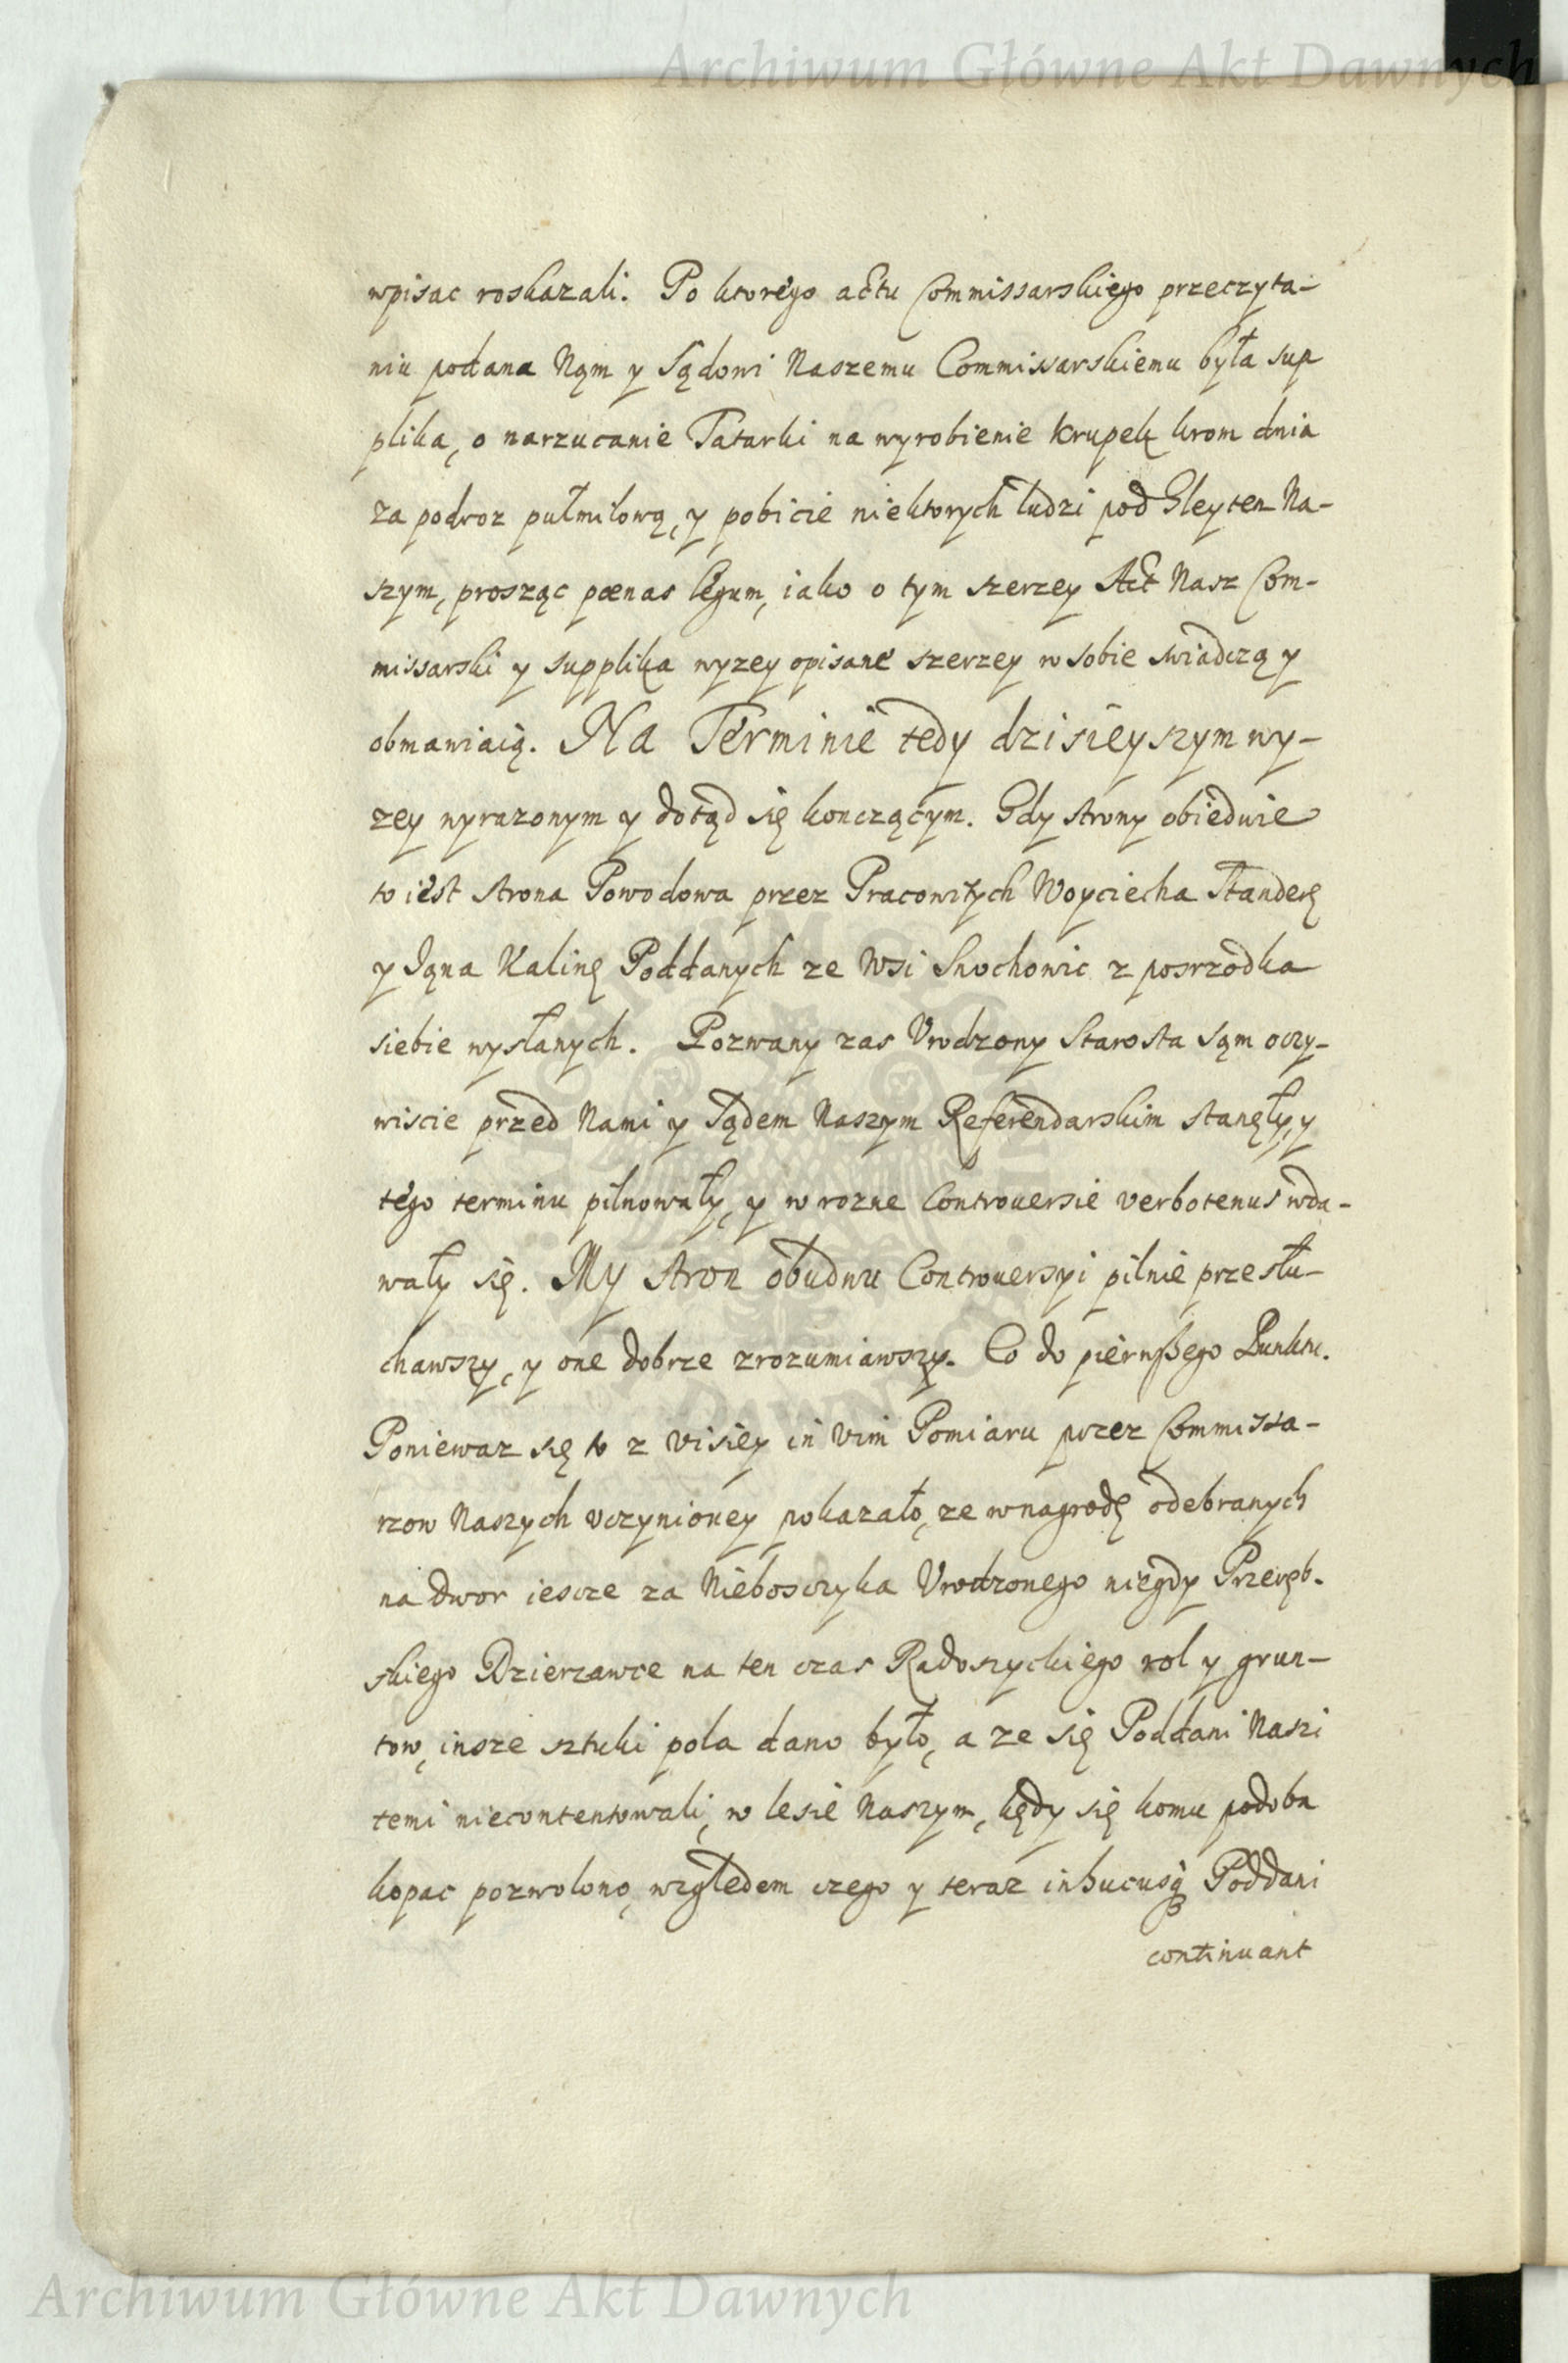 Archiwum Główne Akt Dawnych
wpisac roskazali. Po ktorego actu Commissarskiego przeczyta-
niu podana Nąm y Sądowi Naszemu Commissarskiemu była sup
plika, o narzucanie Tatarki na wyrobienie Krupek krom dnia
za podroz pułmilową, y pobicie niektorych ludzi pod Gleytem Na-
szym, prosząc pœnas legum, iako o tym szerzey Act Nasz Com-
missarski y supplika wyzey opisane szerzey w sobie swiadczą y
obmawiaią. Na Terminie tedy dzisieyszym wy-
zey wyrazonym y dotąd się konczącym. Gdy strony obiedwie
to iest strona Powodowa przez Pracowitych Woyciecha Standerę
y Iąna Kalinę Poddanych ze Wsi Snochowic z posrzodka
siebie wysłanych. Pozwany zas Vrodzony Starosta sąm oczy-
wiscie przed Nami y Sądem Naszym Referendarskim stanęły, y
tego terminu pilnowały, y w rozne Controuersie verbotenus wda-
wały się. My stron obudwu Controuersyi pilnie przesłu-
chawszy, y one dobrze zrozumiawszy. Co do pierwßego Punktu.
Poniewaz się to z visiey in vim Pomiaru przez Commissa-
rzow Naszych vczynioney pokazało, ze w nagrodę odebranych
na dwor iescze za Nieboszczyka Vrodzonego niegdy Przeręb-
skiego Dzierzawce na ten czas Radoszyckiego rol y grun-
tow, insze sztuki pola dano było, a ze się Poddani Naszi
temi niecontentowali, w lesie Naszym, kędy się komu podoba
kopac pozwolono, względem czego y teraz inhucusq3 Poddani
continuant
Archiwum Główne Akt Dawnych